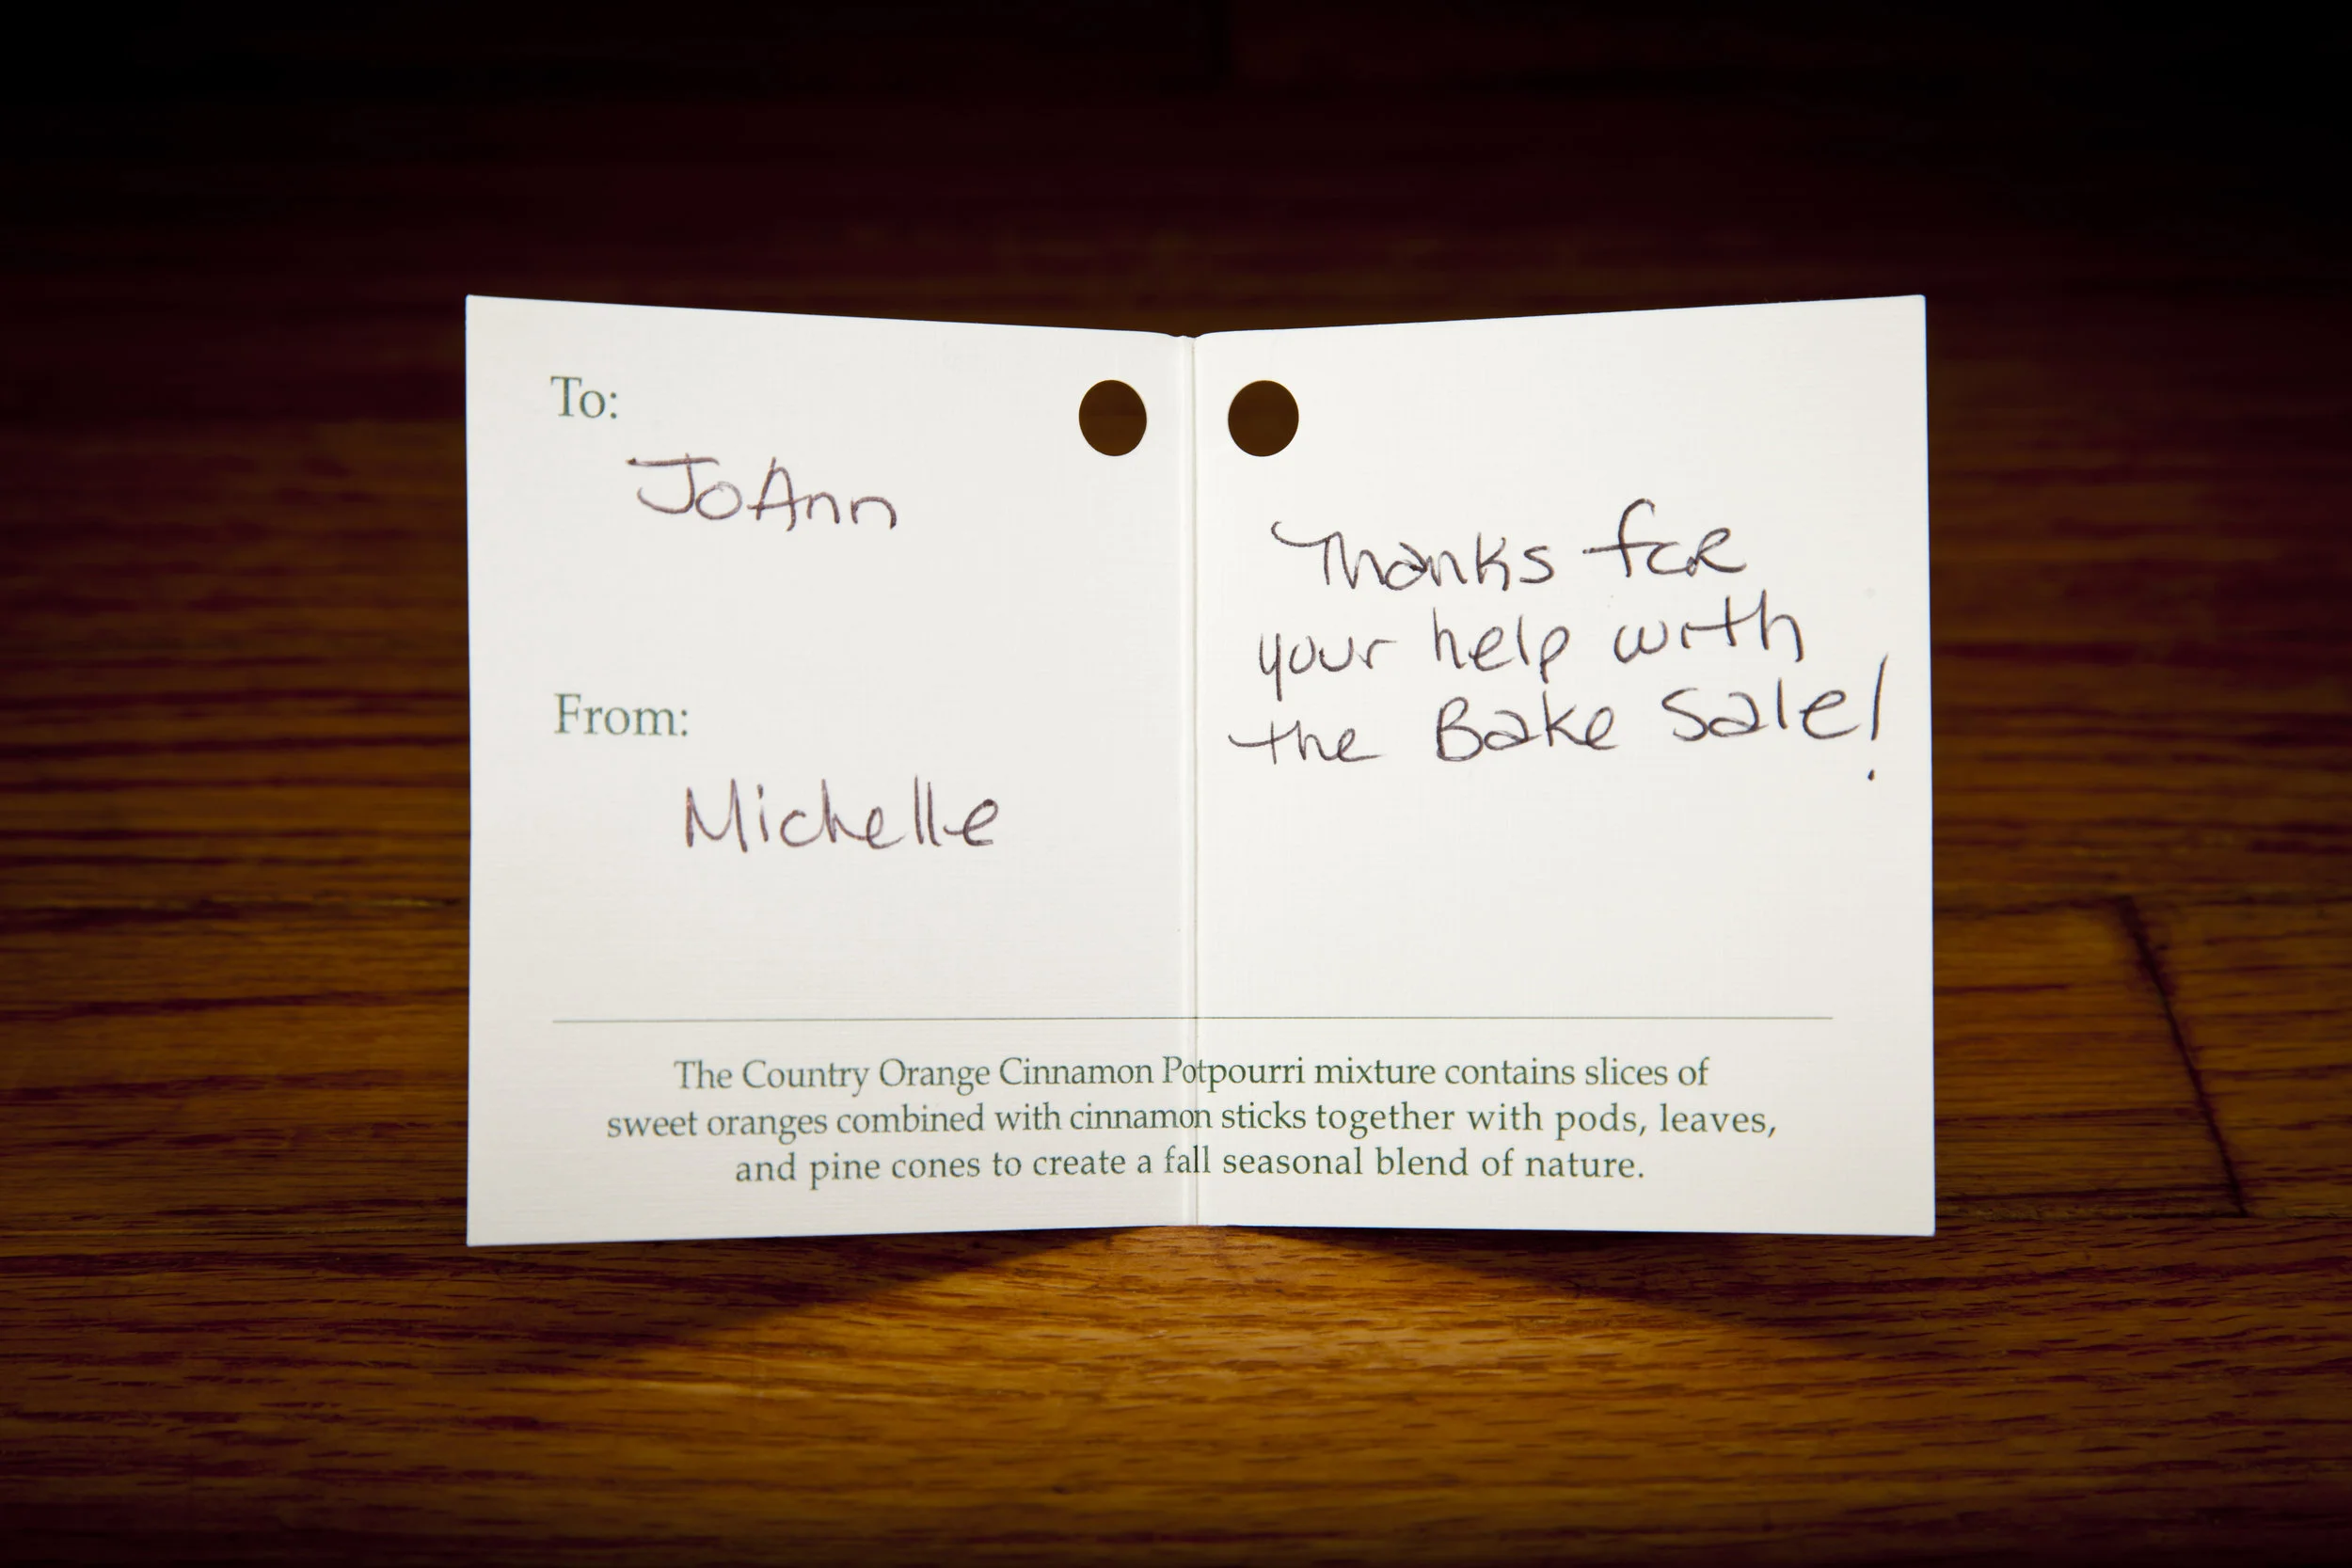 To:
JoAnn
From:
Michelle
Thanks for
your help with
the Bake Sale!
The Country Orange Cinnamon Potpourri mixture contains slices of
sweet oranges combined with cinnamon sticks together with pods, leaves,
and pine cones to create a fall seasonal blend of nature.